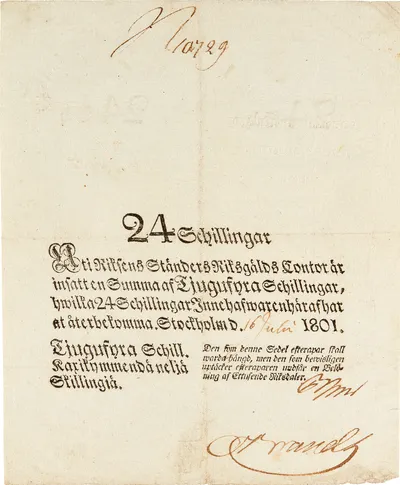 No 10729
24 Schillingar
Uti Riksens Ständers Riksgälds Contor är
insatt en Summa af Tjugufyra Schillingar,
hwilka 24 Schillingar Innehafwaren häraf har
at återbekomma. Stockholm d. 16 Julii 1801.
Tjugufyra Schill.
Kaxikymmendä neljä
Skillingiä.
Den som denne Sedel efterapar skall
warda hängd, men den som bewisligen
uptäcker efteraparen undfår en Belö-
ning af Ettusende Riksdaler.